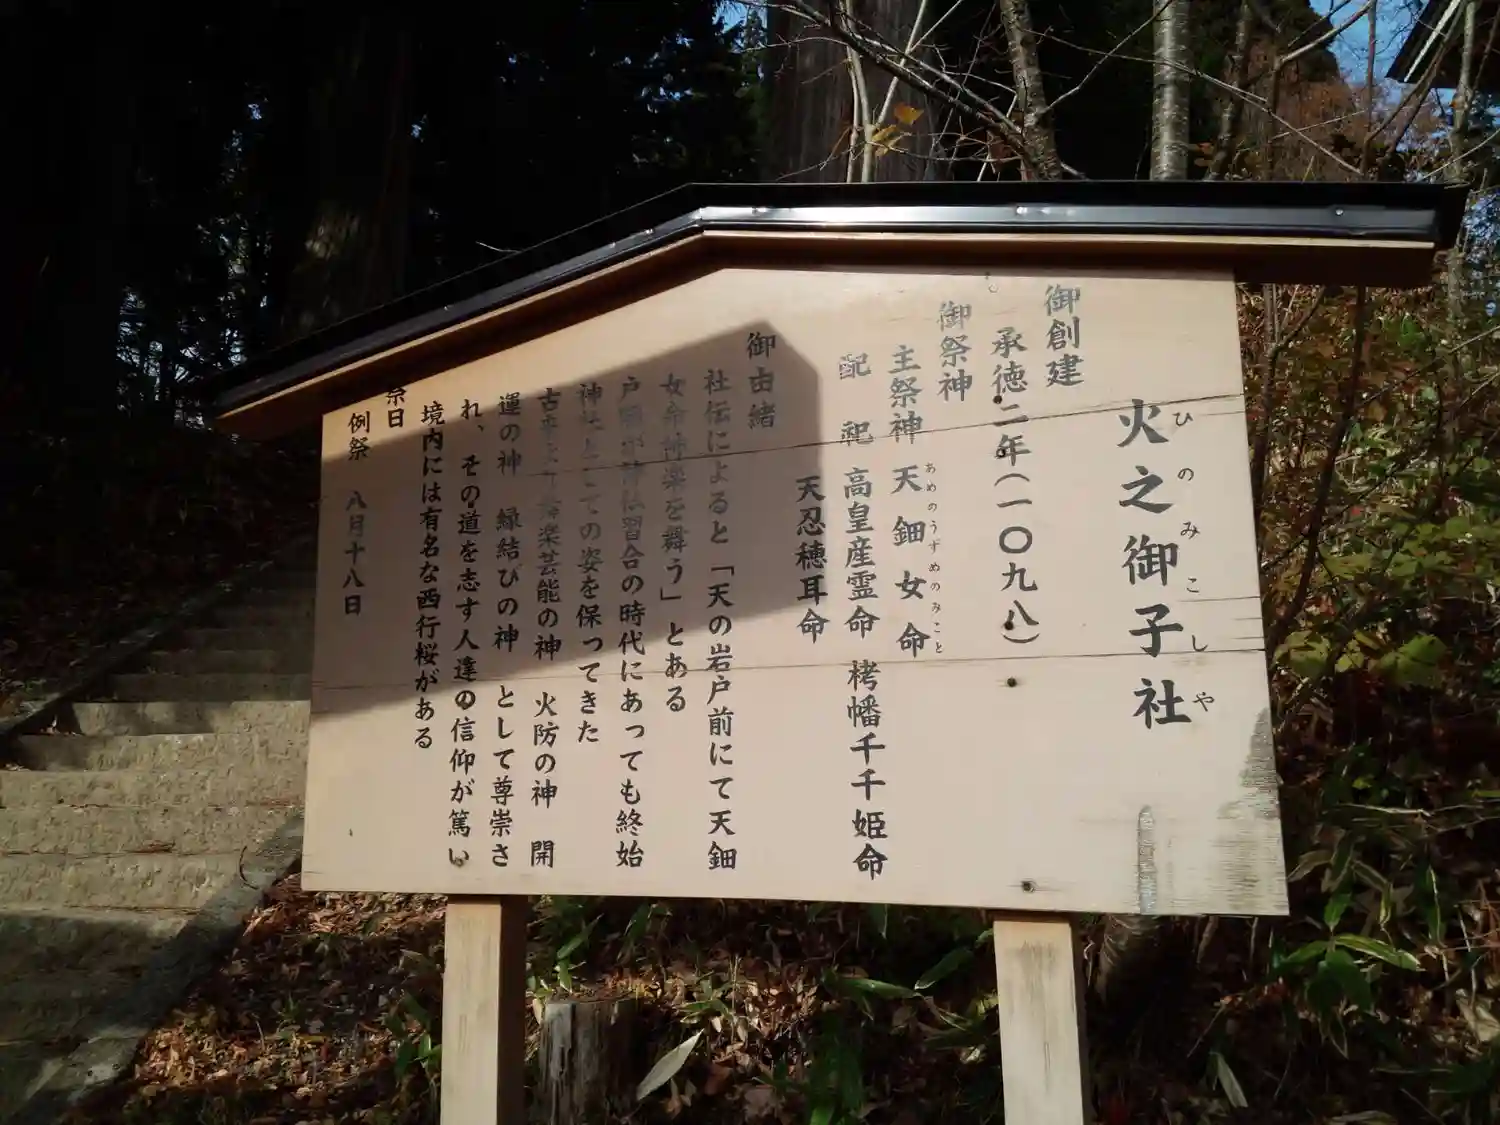 火之御子社
ひのみこしや
御創建
承徳二年(一〇九八)
御祭神
主祭神 天鈿女命
あめのうずめのみこと
配 祀 高皇産霊命 栲幡千千姫命
天忍穂耳命
御由緒
社伝によると「天の岩戸前にて天鈿
女命神楽を舞う」とある
戸隠が神仏習合の時代にあっても終始
神社としての姿を保ってきた
古来より舞楽芸能の神 火防の神 開
運の神 縁結びの神 として尊崇さ
れ、その道を志す人達の信仰が篤い
境内には有名な西行桜がある
祭日
例祭 八月十八日